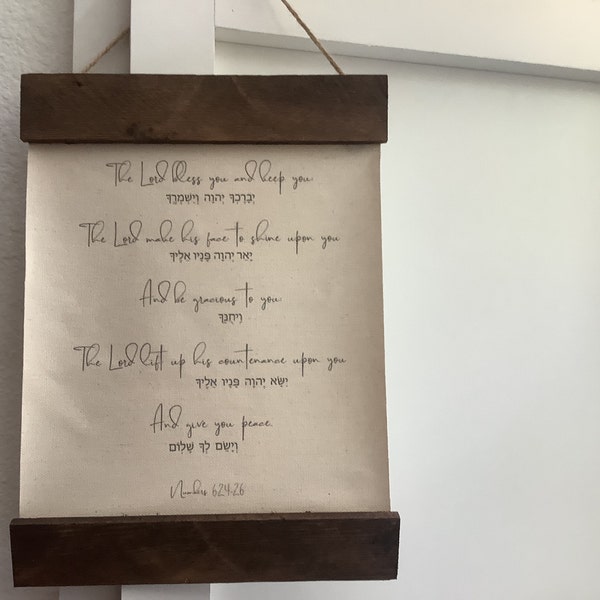 The Lord bless you and keep you:
יְבָרֶכְךָ יְהוָה וְיִשְׁמְרֶךָ
The Lord make his face to shine upon you
יָאֵר יְהוָה פָּנָיו אֵלֶיךָ
And be gracious to you:
וִיחֻנֶּךָּ
The Lord lift up his countenance upon you
יִשָּׂא יְהוָה פָּנָיו אֵלֶיךָ
And give you peace.
וְיָשֵׂם לְךָ שָׁלוֹם
Numbers 6:24-26